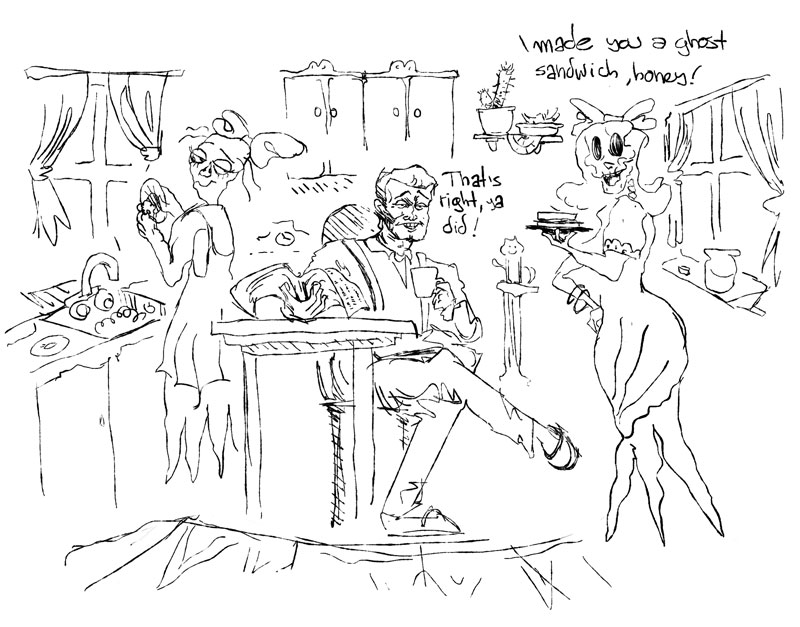 I made you a ghost
sandwich, honey!
That's
right, ya
did!